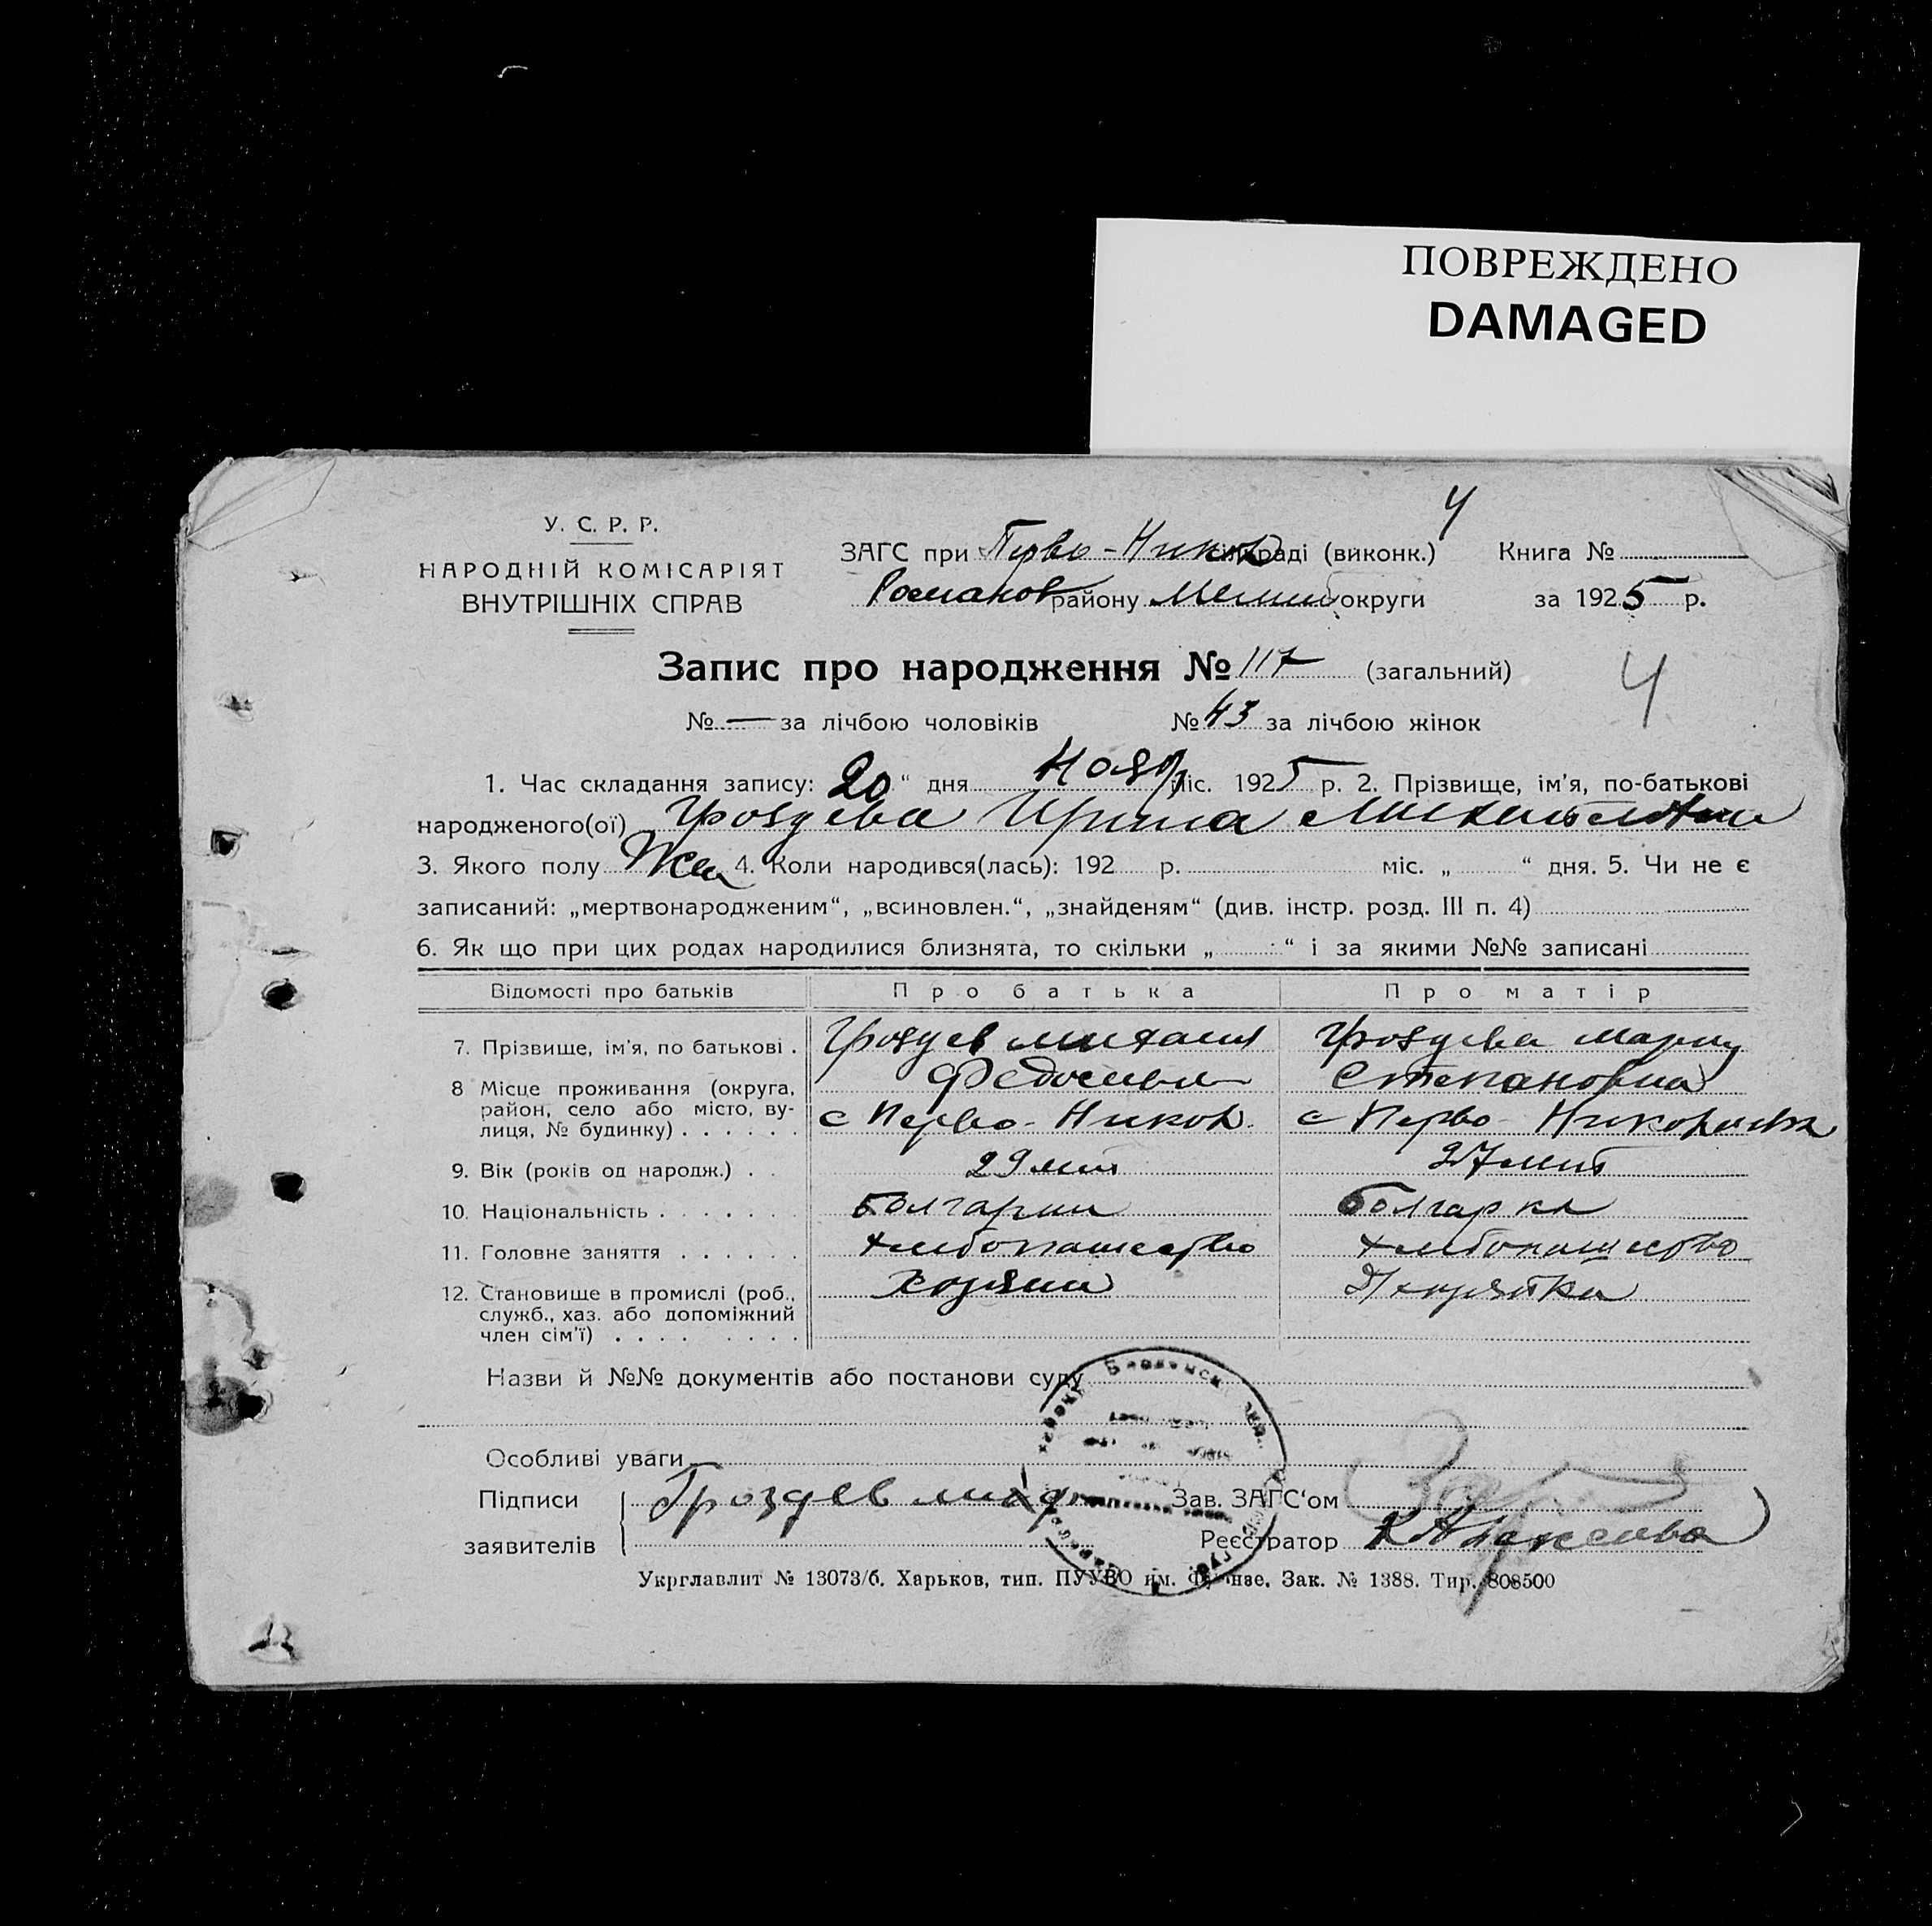 ПОВРЕЖДЕНО
DAMAGED
4
У. С. Р. Р.
НАРОДНІЙ КОМІСАРІЯТ
ВНУТРІШНІХ СПРАВ
ЗАГС при Перво-Никол сільраді (виконк.) Книга №
Романов району Мелит округи за 1925 р.
Запис про народження № 117 (загальний)
4
№ — за лічбою чоловіків № 43 за лічбою жінок
1. Час складання запису: 20 “ дня Нояб міс. 1925 р. 2. Прізвище, ім’я, по-батькові
народженого(ої) Гроздева Ирина Михайловна
3. Якого полу Жен 4. Коли народився(лась): 192 р. міс. „ “ дня. 5. Чи не є
записаний: „мертвонародженим“, „всиновлен.“, „знайденям“ (див. інстр. розд. III п. 4)
6. Як що при цих родах народилися близнята, то скільки „ “ і за якими №№ записані
Відомості про батьків Про батька Про матір
7. Прізвище, ім’я, по батькові . Гроздев Михаил Гроздева Мария
Федосиев Степановна
8 Місце проживання (округа, район, село або місто, вулиця, № будинку) . . . . . . с Перво-Никол. с Перво-Николаевка
9. Вік (років од народж.) . . 29 лет 27 лет
10. Національність . . . . . . . Болгарин Болгарка
11. Головне заняття . . . . . . Хлебопашество Хлебопашество
12. Становище в промислі (роб., служб., хаз. або допоміжний член сім’ї) . . . . . . . . Хозяин Хозяйка
Назви й №№ документів або постанови суду
Особливі уваги
Підписи Гроздев Мих Зав. ЗАГС‘ом
заявителів Реєстратор К Алексеева
Укрглавлит № 13073/б. Харьков, тип. ПУУВО им. Фрунзе. Зак. № 1388. Тир. 808500